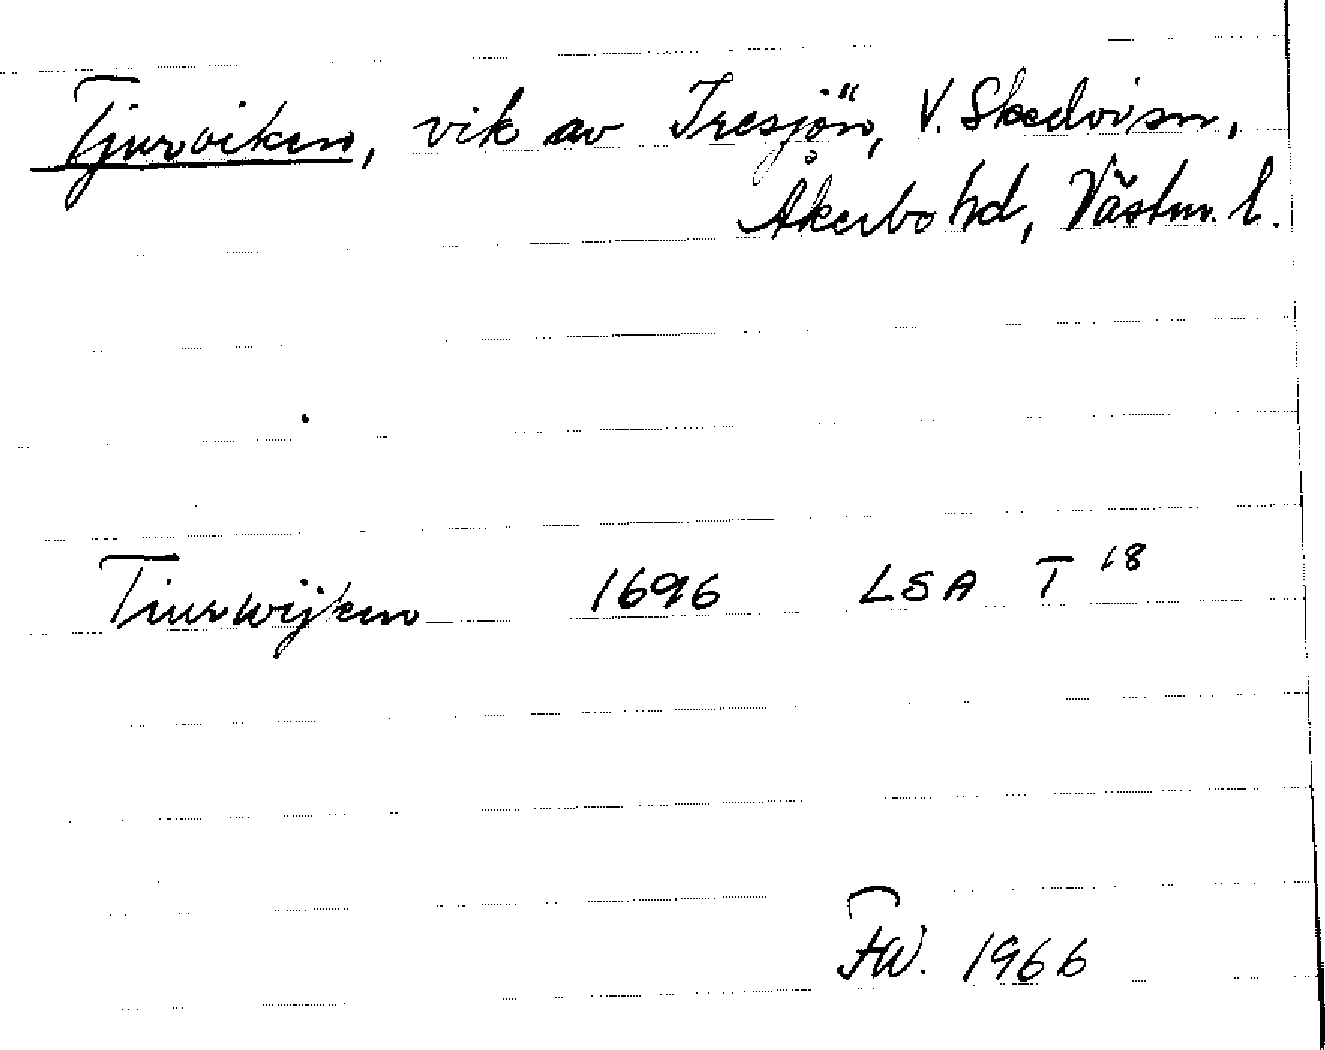 Tjurviken, vik av Tresjön, V. Skedvi sn,
Åkerbo hd, Västm. l.
Tiurwijken 1696 LSA T 18
FW. 1966